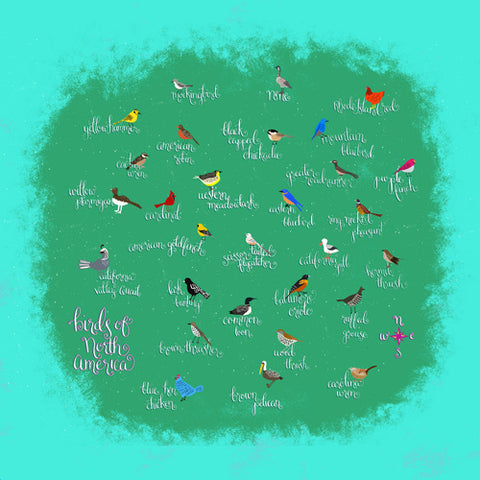 mockingbird
nene
Rhode Island red
yellowhammer
american
robin
black
capped
chickadee
mountain
bluebird
cactus
wren
greater
roadrunner
purple
finch
willow
ptarmigan
cardinal
western
meadowlark
eastern
bluebird
ring necked
pheasant
american goldfinch
scissor tailed
flycatcher
california gull
hermit
thrush
california
valley quail
lark
bunting
common
loon
baltimore
oriole
ruffed
grouse
birds of
North
America
n
w e
s
brown thrasher
wood
thrush
blue hen
chicken
brown
pelican
carolina
wren